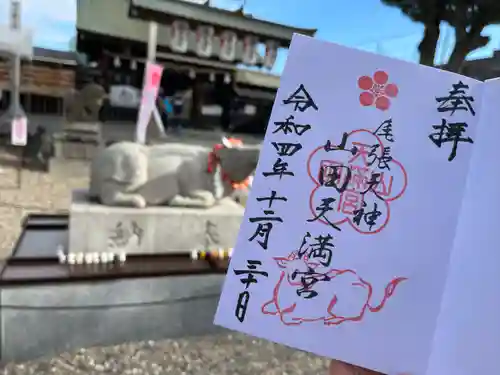 奉拝
尾張天神
山田天満宮
令和四年十二月三十日
奉納